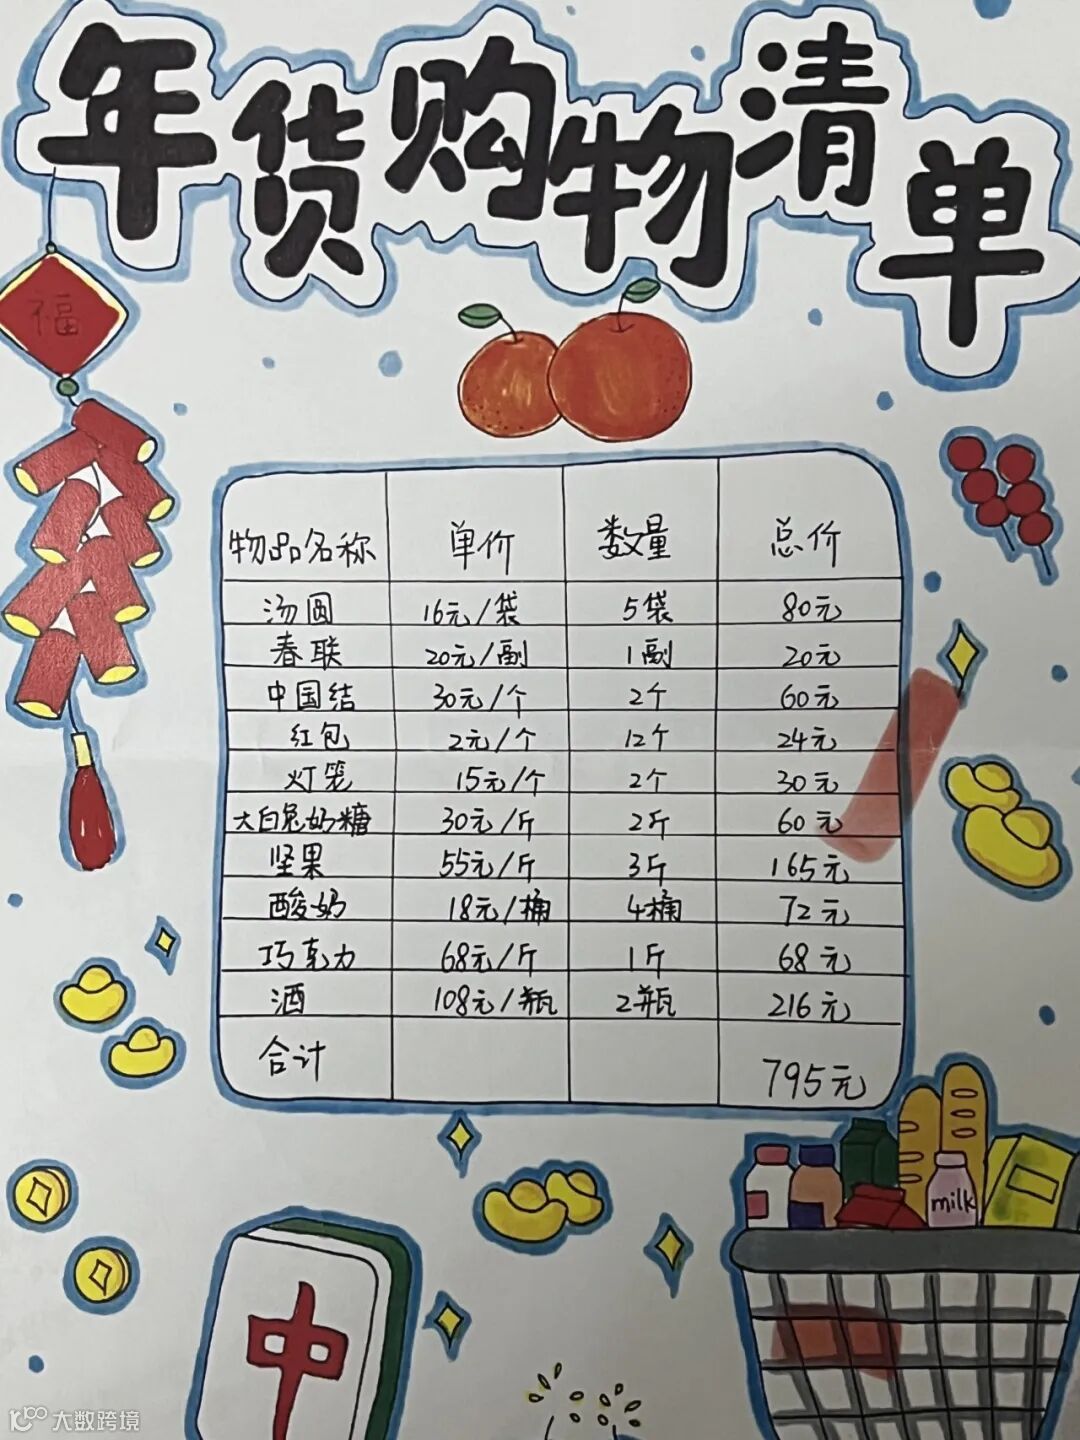 年货购物清单
福
物品名称 单价 数量 总价
汤圆 16元/袋 5袋 80元
春联 20元/副 1副 20元
中国结 30元/个 2个 60元
红包 2元/个 12个 24元
灯笼 15元/个 2个 30元
大白兔奶糖 30元/斤 2斤 60元
坚果 55元/斤 3斤 165元
酸奶 18元/桶 4桶 72元
巧克力 68元/斤 1斤 68元
酒 108元/瓶 2瓶 216元
合计 795元
milk
中
大数跨境